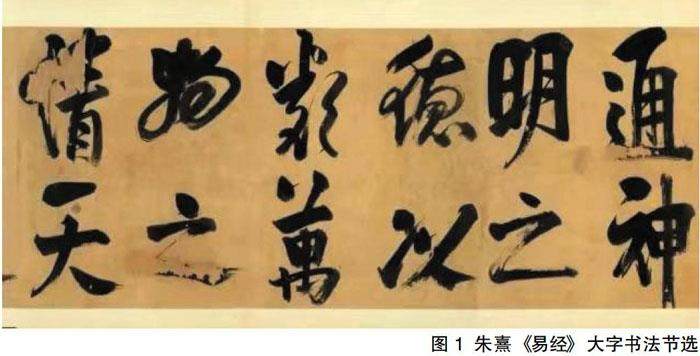 通神
明之
德以
類萬
物之
情天
图 1 朱熹《易经》大字书法节选